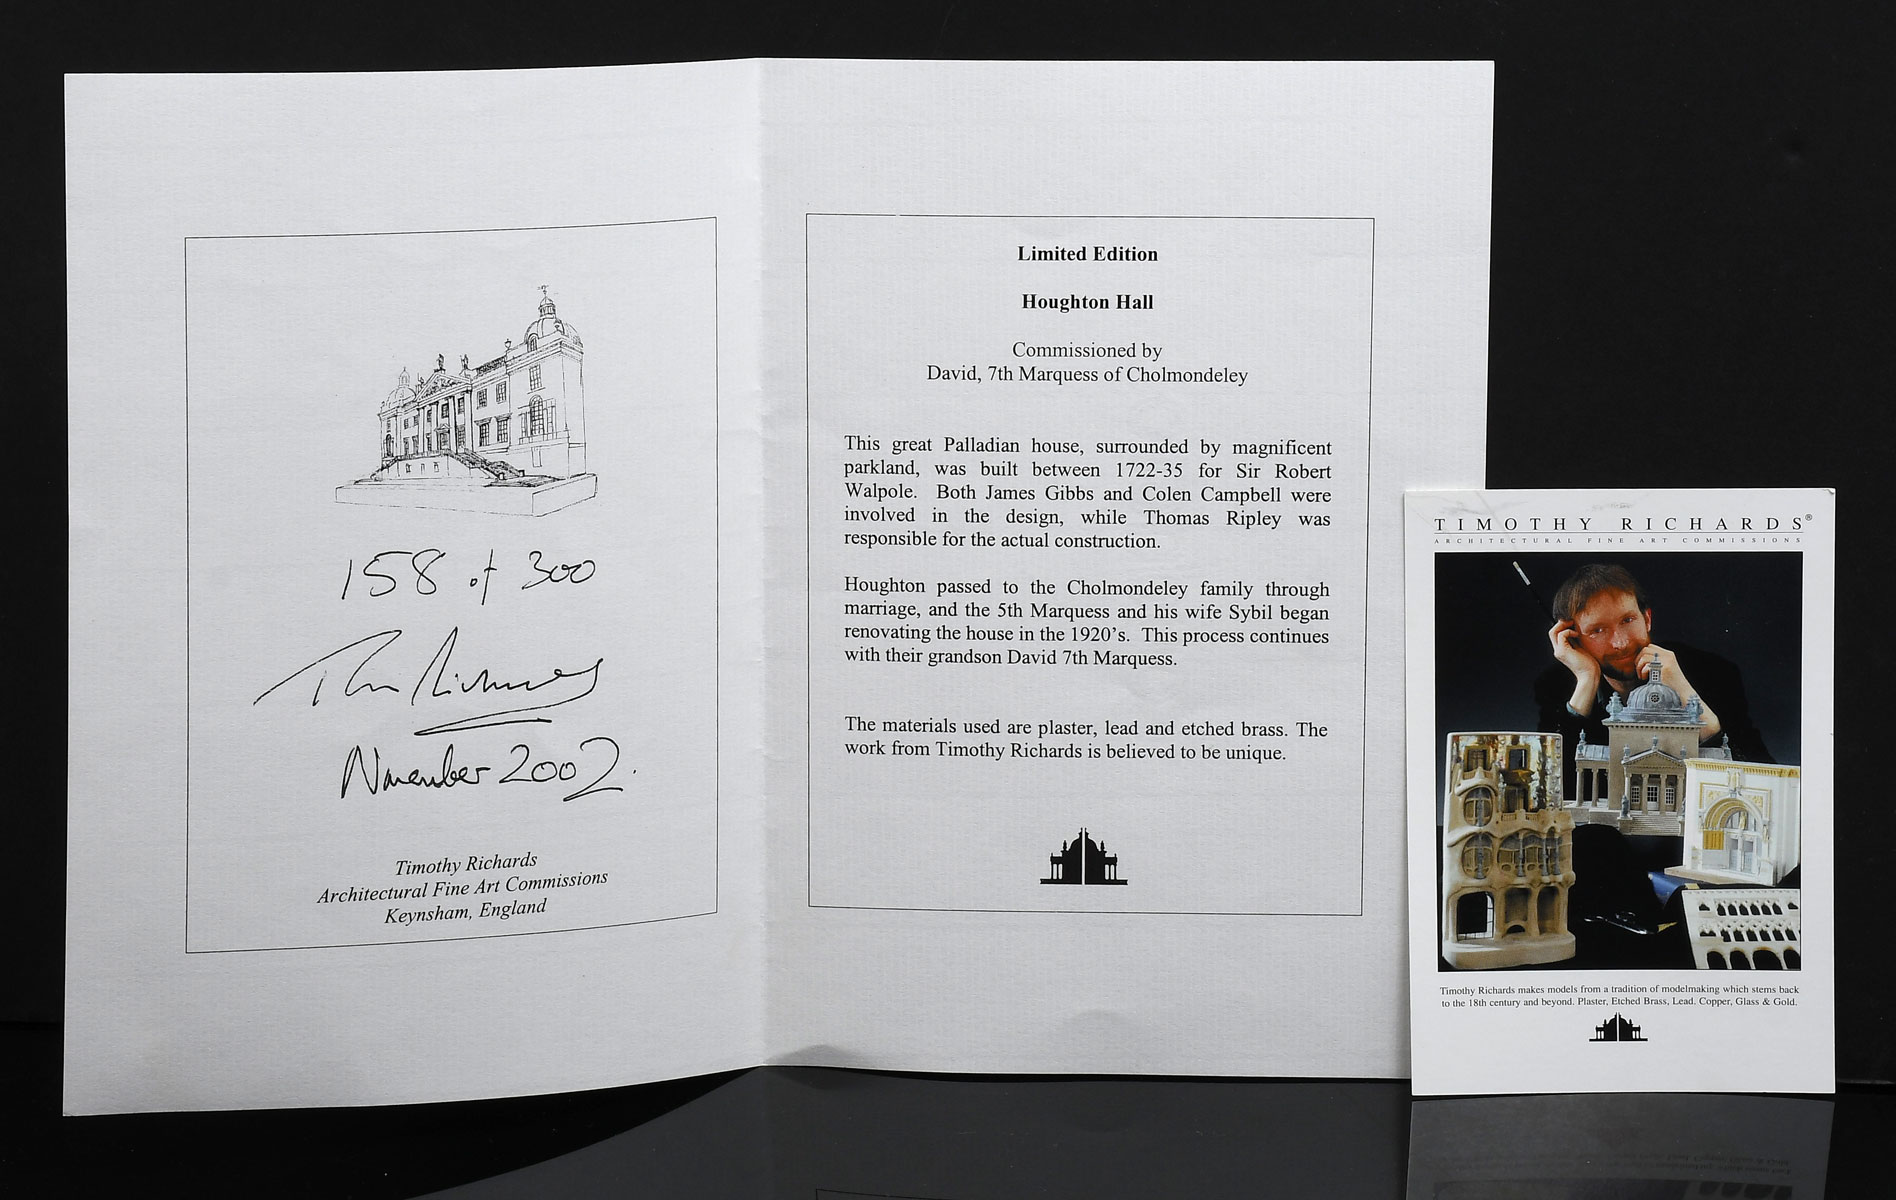 158 of 300
Tim Richards
November 2002.
Timothy Richards
Architectural Fine Art Commissions
Keynsham, England
Limited Edition
Houghton Hall
Commissioned by
David, 7th Marquess of Cholmondeley
This great Palladian house, surrounded by magnificent
parkland, was built between 1722-35 for Sir Robert
Walpole. Both James Gibbs and Colen Campbell were
involved in the design, while Thomas Ripley was
responsible for the actual construction.
Houghton passed to the Cholmondeley family through
marriage, and the 5th Marquess and his wife Sybil began
renovating the house in the 1920's. This process continues
with their grandson David 7th Marquess.
The materials used are plaster, lead and etched brass. The
work from Timothy Richards is believed to be unique.
TIMOTHY RICHARDS®
ARCHITECTURAL FINE ART COMMISSIONS
Timothy Richards makes models from a tradition of modelmaking which stems back
to the 18th century and beyond. Plaster, Etched Brass, Lead. Copper, Glass & Gold.